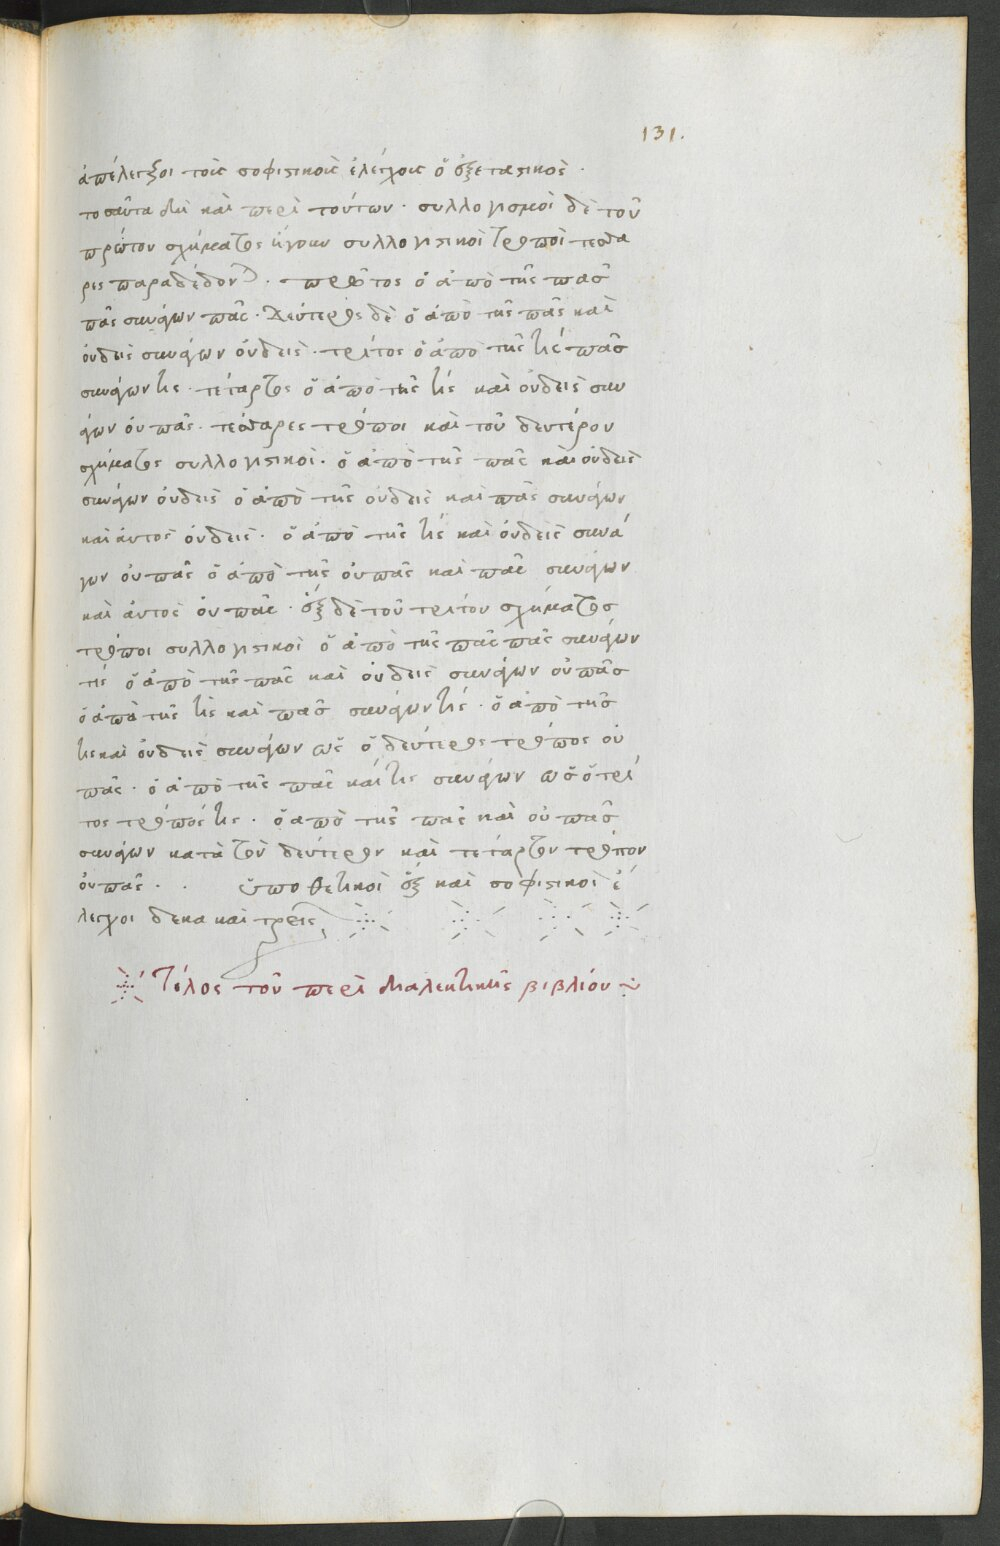 131.
ἀπέλεγξοι τοῖς σοφιστικοῖς ἐλέγχοις ὁ ἐξεταστικὸς .
τοσαῦτα δὴ καὶ περὶ τούτων . συλλογισμοὶ δὲ τοῦ
πρώτου σχήματος ἤγουν συλλογιστικοὶ τρόποι τέσσα
ρες παραδέδονται . πρῶτος ὁ ἀπὸ τῆς πᾶσ
πᾶς συνάγων πᾶς . δεύτερος δὲ ὁ ἀπὸ τῆς πᾶς καὶ
οὐδεὶς συνάγων οὐδείς . τρίτος ὁ ἀπὸ τῆς τὶς πᾶσ
συνάγων τὶς . τέταρτος ὁ ἀπὸ τῆς τὶς καὶ οὐδεὶς συν
άγων οὐ πᾶς . τέσσαρες τρόποι καὶ τοῦ δευτέρου
σχήματος συλλογιστικοί . ὁ ἀπὸ τῆς πᾶς καὶ οὐδεὶς
συνάγων οὐδεὶς ὁ ἀπὸ τῆς οὐδεὶς καὶ πᾶς συνάγων
καὶ αὐτὸς οὐδείς . ὁ ἀπὸ τῆς τὶς καὶ οὐδεὶς συνά
γων οὐ πᾶς ὁ ἀπὸ τῆς οὐ πᾶς καὶ πᾶς συνάγων
καὶ αὐτὸς οὐ πᾶς . ἓξ δὲ τοῦ τρίτου σχήματος
τρόποι συλλογιστικοὶ ὁ ἀπὸ τῆς πᾶς πᾶς συνάγων
τὶς ὁ ἀπὸ τῆς πᾶς καὶ οὐδεὶς συνάγων οὐ πᾶσ
ὁ ἀπὸ τῆς τὶς καὶ πᾶσ συνάγων τὶς . ὁ ἀπὸ τῆσ
τὶς καὶ οὐδεὶς συνάγων ὡς ὁ δεύτερος τρόπος οὐ
πᾶς . ὁ ἀπὸ τῆς πᾶς καὶ τὶς συνάγων ὡς ὁ τρί
τος τρόπος τὶς . ὁ ἀπὸ τῆς πᾶς καὶ οὐ πᾶσ
συνάγων κατὰ τὸν δεύτερον καὶ τέταρτον τρόπον
οὐ πᾶς . . ὑποθετικοὶ ἓξ καὶ σοφιστικοὶ ἔ
λεγχοι δέκα καὶ τρεῖς
Τέλος τοῦ περὶ διαλεκτικῆς βιβλίου